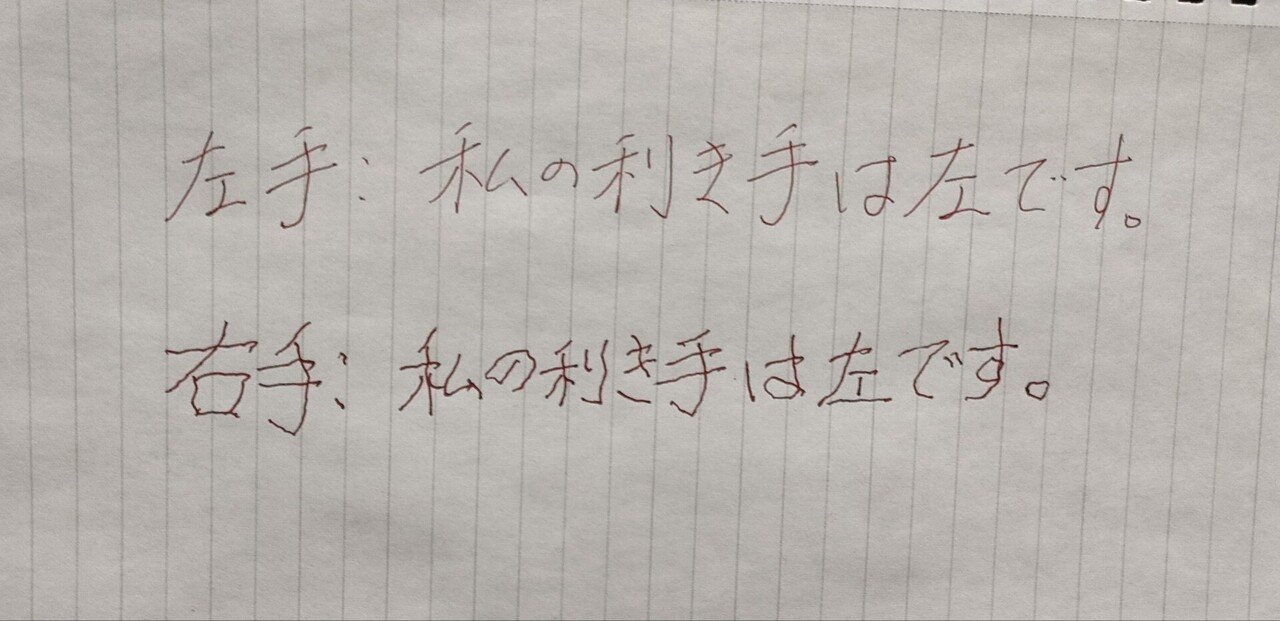 左手: 私の利き手は左です。
右手: 私の利き手は左です。